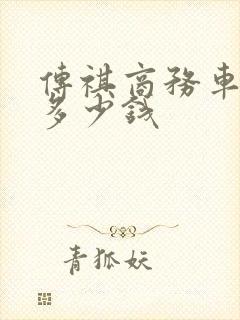 傳祺商務車
多少錢
青狐妖